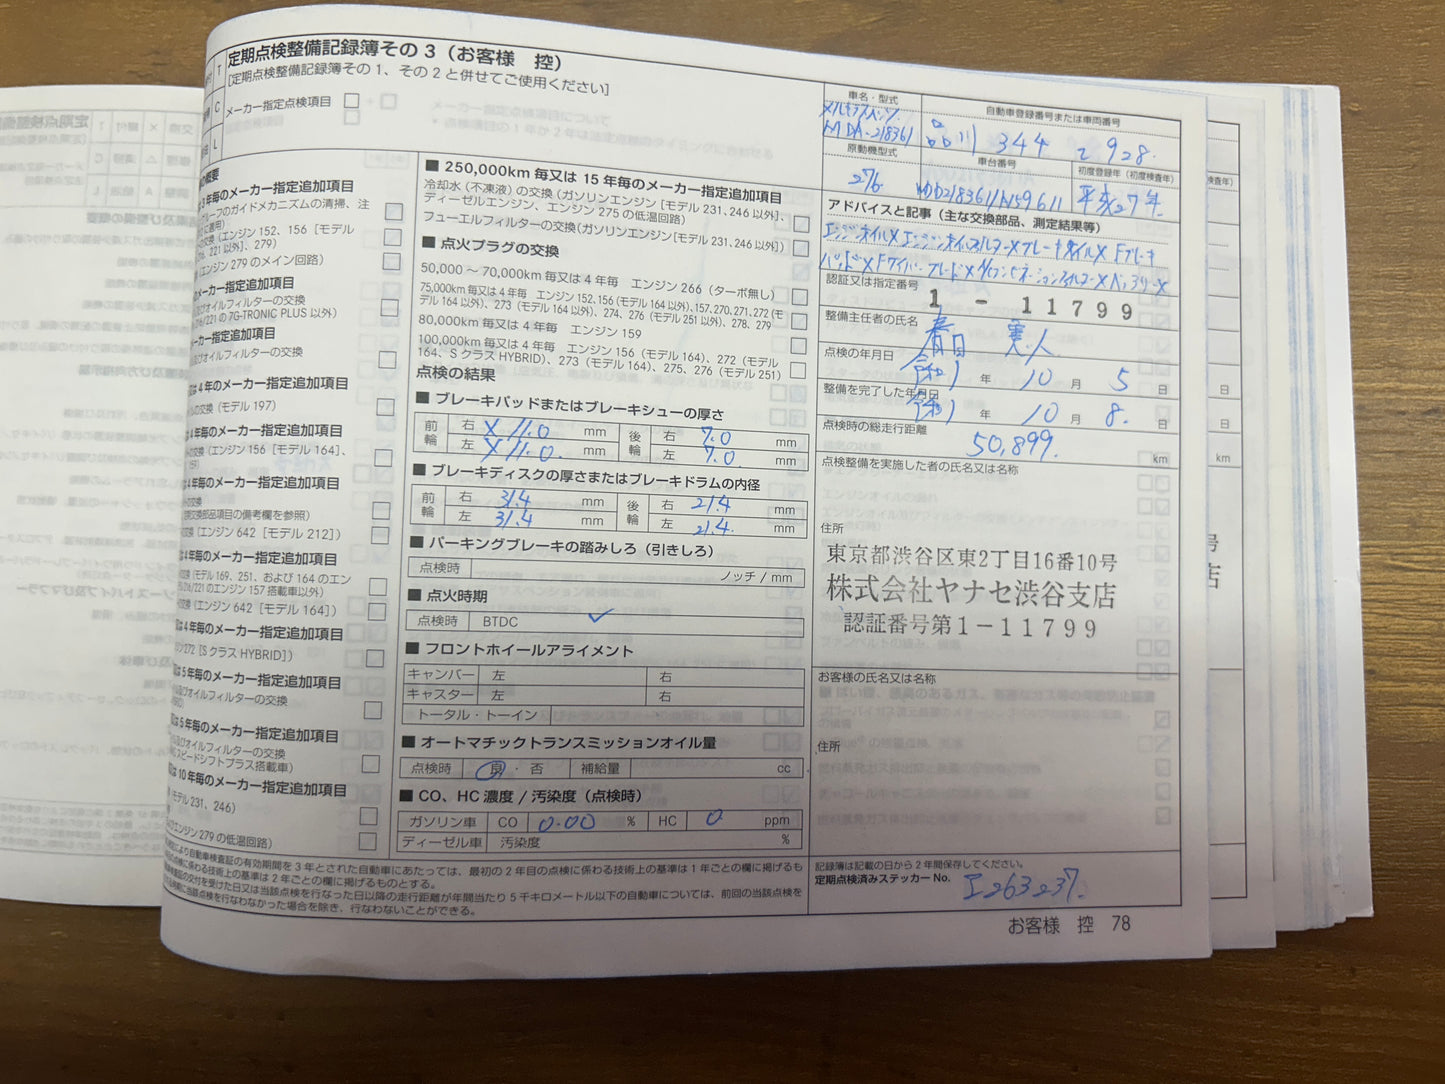 定期点検整備記録簿その3（お客様　控）
[定期点検整備記録簿その1、その2と併せてご使用ください]
T
C
L
メーカー指定点検項目
の概要
3年毎のメーカー指定追加項目
ルーフのガイドメカニズムの清掃、注
の交換（エンジン 152、156［モデル
216、221 以外］、279）
（エンジン 279 のメイン回路）
のメーカー指定追加項目
及びオイルフィルターの交換
216/221 の 7G-TRONIC PLUS 以外）
メーカー指定追加項目
及びオイルフィルターの交換
は 4 年毎のメーカー指定追加項目
の交換（モデル 197）
は 4 年毎のメーカー指定追加項目
の交換（エンジン 156［モデル 164］、
は 4 年毎のメーカー指定追加項目
の交換
交換部品項目の備考欄を参照）
交換（エンジン 642［モデル 212］）
は 4 年毎のメーカー指定追加項目
交換（モデル 169、251、および 164 のエン
216/221 のエンジン 157 搭載車以外）
交換（エンジン 642［モデル 164］）
は 4 年毎のメーカー指定追加項目
ジン 272［S クラス HYBRID］）
は 5 年毎のメーカー指定追加項目
及びオイルフィルターの交換
は 5 年毎のメーカー指定追加項目
及びオイルフィルターの交換
スピードシフトプラス搭載車）
は 10 年毎のメーカー指定追加項目
モデル 231、246）
エンジン 279 の低温回路）
■ 250,000km 毎又は 15 年毎のメーカー指定追加項目
冷却水（不凍液）の交換（ガソリンエンジン［モデル 231、246 以外］、
ディーゼルエンジン、エンジン 275 の低温回路）
フューエルフィルターの交換（ガソリンエンジン［モデル 231、246 以外］）
■ 点火プラグの交換
50,000 ～ 70,000km 毎又は 4 年毎　エンジン 266（ターボ無し）
75,000km 毎又は 4 年毎　エンジン 152、156（モデル 164 以外）、157、270、271、272（モ
デル 164 以外）、273（モデル 164 以外）、274、276（モデル 251 以外）、278、279
80,000km 毎又は 4 年毎　エンジン 159
100,000km 毎又は 4 年毎　エンジン 156（モデル 164）、272（モデル
164、S クラス HYBRID）、273（モデル 164）、275、276（モデル 251）
点検の結果
■ ブレーキパッドまたはブレーキシューの厚さ
前輪 右 X 11.0 mm 後輪 右 7.0 mm
左 X 11.0 mm 左 7.0 mm
■ ブレーキディスクの厚さまたはブレーキドラムの内径
前輪 右 31.4 mm 後輪 右 21.4 mm
左 31.4 mm 左 21.4 mm
■ パーキングブレーキの踏みしろ（引きしろ）
点検時 ノッチ / mm
■ 点火時期
点検時 BTDC ✓
■ フロントホイールアライメント
キャンバー 左 右
キャスター 左 右
トータル・トーイン
■ オートマチックトランスミッションオイル量
点検時 良・否 補給量 cc
■ CO、HC 濃度 / 汚染度（点検時）
ガソリン車 CO 0.00 % HC 0 ppm
ディーゼル車 汚染度 %
により自動車検査証の有効期間を 3 年とされた自動車にあたっては、最初の 2 年目の点検に係わる技術上の基準は 1 年ごとの欄に掲げるも
点検に係わる技術上の基準は 2 年ごとの欄に掲げるものとする。
の交付を受けた日又は当該点検を行なった日以降の走行距離が年間当たり 5 千キロメートル以下の自動車については、前回の当該点検を
に当該点検を行なわなかった場合を除き、行なわないことができる。
車名・型式
メルセデスベンツ
MDA-218361
自動車登録番号または車両番号
品川 344 て 928
原動機型式
276
車台番号
WDD2183611A159611
初度登録年（初度検査年）
平成27年
アドバイスと記事（主な交換部品、測定結果等）
エンジンオイルX エンジンオイルフィルターX ブレーキオイルX Fブレーキ
パッドX FワイパーブレードX
認証又は指定番号
1 - 11799
整備主任者の氏名
春日
点検の年月日
令和1 年 10 月 5 日
整備を完了した年月日
令和1 年 10 月 8 日
点検時の総走行距離
50,899 km
点検整備を実施した者の氏名又は名称
住所
東京都渋谷区東2丁目16番10号
株式会社ヤナセ渋谷支店
認証番号第1－11799
お客様の氏名又は名称
住所
記録簿は記載の日から 2 年間保存してください。
定期点検済みステッカー No. I263237
お客様　控　78
検査年）
日
日
km
号
店